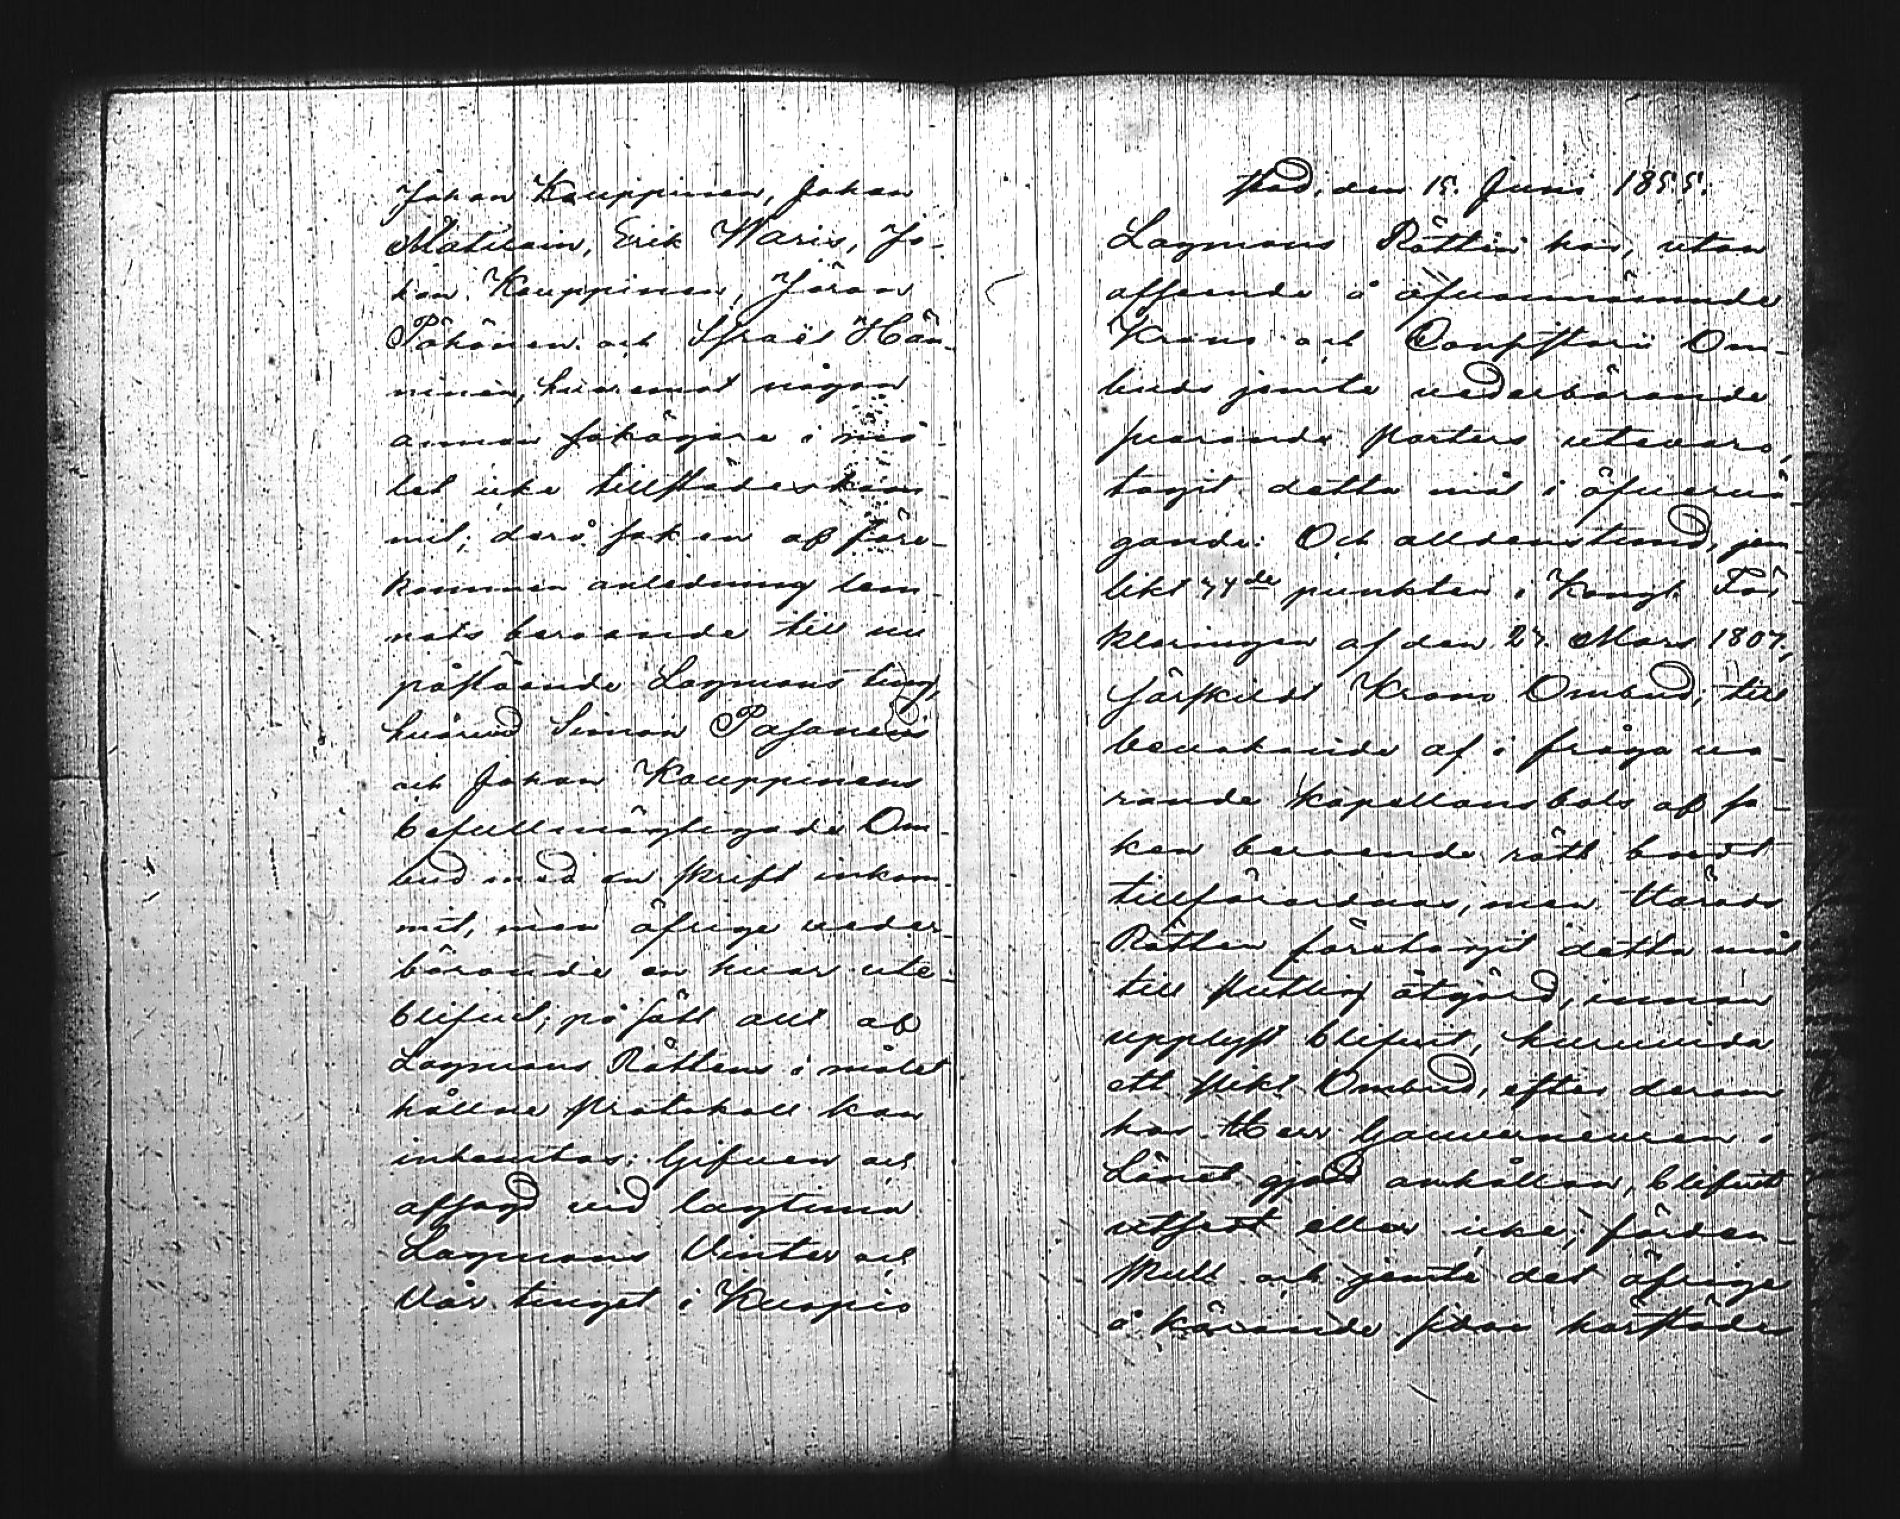 Johan Kauppinen, Johan
Matilain, Erik Waris, Jo-
han Kauppinen, Jöran
Pöhönen och Israel Hän-
ninen, hvaremot någon
annan sakägare i må-
let icke tillstädeskom-
mit; derå saken af före-
kommen anledning lem-
nats beroende till nu
påstående Lagmans ting,
hvarvid Simon Pasanens
och Johan Kauppinens
befullmägtigade Om-
bud med en skrift inkom-
mit, men öfrige veder-
börande en hvar ute-
blifvit; på sätt allt af
Lagmans Rättens i målet
hållne Protokoll kan
inhemtas. Gifven och
afsagd vid lagtima
Lagmans Vinter och
Vår tinget i Kuopio
stad, den 15. Juni 1855.
Lagmans Rätten har, utan
afseende å ofvannämnde
Krono och Consistorii Om-
buds jemte vederbörande
svarande Parters utevaro,
tagit detta mål i öfvervä-
gande: Och alldenstund, jem-
likt 74de punkten i Kongl. För-
klaringen af den 27. Mars 1807,
särskildt Krono Ombud, till
bevakande af i fråga va-
rande kapellansbols af sa-
ken beroende rätt bordt
tillförordnas, men Härads
Rätten företagit detta mål
till slutlig åtgärd, innan
upplyst blifvit, huruvida
ett slikt Ombud, efter derom
hos Herr Gouverneuren i
Länet gjord anhållan, blifvit
utsedt eller icke; förden-
skull och jemte det öfrige
å kärande sidan härstädes